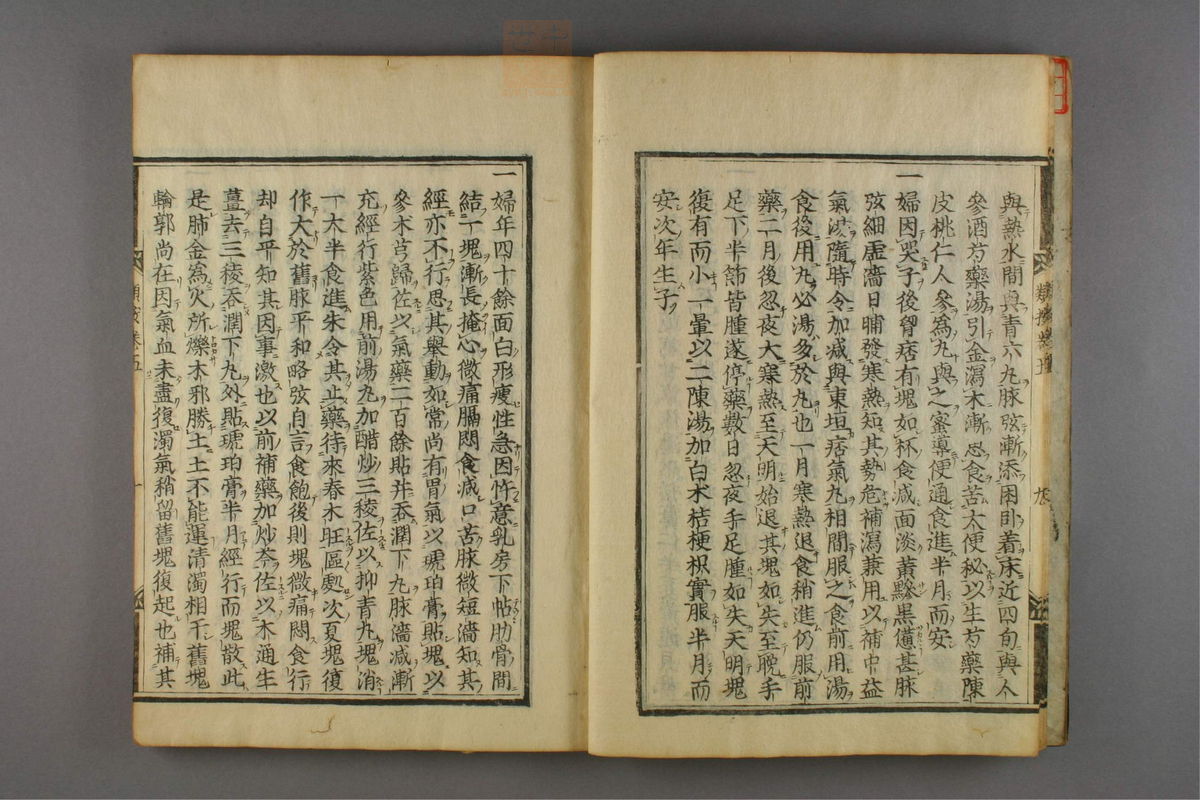 與熱水間與青六丸脉弦漸添困卧着床近四旬與人
參酒芍藥湯引金瀉木漸思食苦大便秘以生芍藥陳
皮桃仁人參爲丸與之蜜導便通食進半月而安
一婦因哭子後胷痞有塊如杯食减面淡黄黲黒憊甚脉
弦細虛濇日晡發寒熱知其勢危補瀉兼用以補中益
氣湯隨時令加减與東垣痞氣丸相間服之食前用湯
食後用丸必湯多於丸也一月寒熱退食稍進仍服前
藥二月後忽夜大寒熱至天明始退其塊如失至晩手
足下半節皆腫遂停藥數日忽夜手足腫如失天明塊
復有而小一暈以二陳湯加白术桔梗枳實服半月而
安次年生子
一婦年四十餘面白形瘦性急因忤意乳房下帖肋骨間
結一塊漸長掩心微痛膈悶食减口苦脉微短濇知其
經亦不行思其舉動如常尚有胃氣以琥珀膏貼塊以
參术芎歸佐以氣藥二百餘貼幷吞潤下丸脉濇减漸
充經行紫色用前湯丸加醋炒三稜佐以抑青丸塊消
一大半食進朱令其止藥待來春木旺區處次夏塊復
作大於舊脉平和略弦自言食飽後則塊微痛悶食行
却自平知其因事激也以前補藥加炒芩佐以木通生
薑去三稜吞潤下丸外貼琥珀膏半月經行而塊散此
是肺金爲火所爍木邪勝土土不能運清濁相干舊塊
輪郭尚在因氣血未盡復濁氣稍留舊塊復起也補其